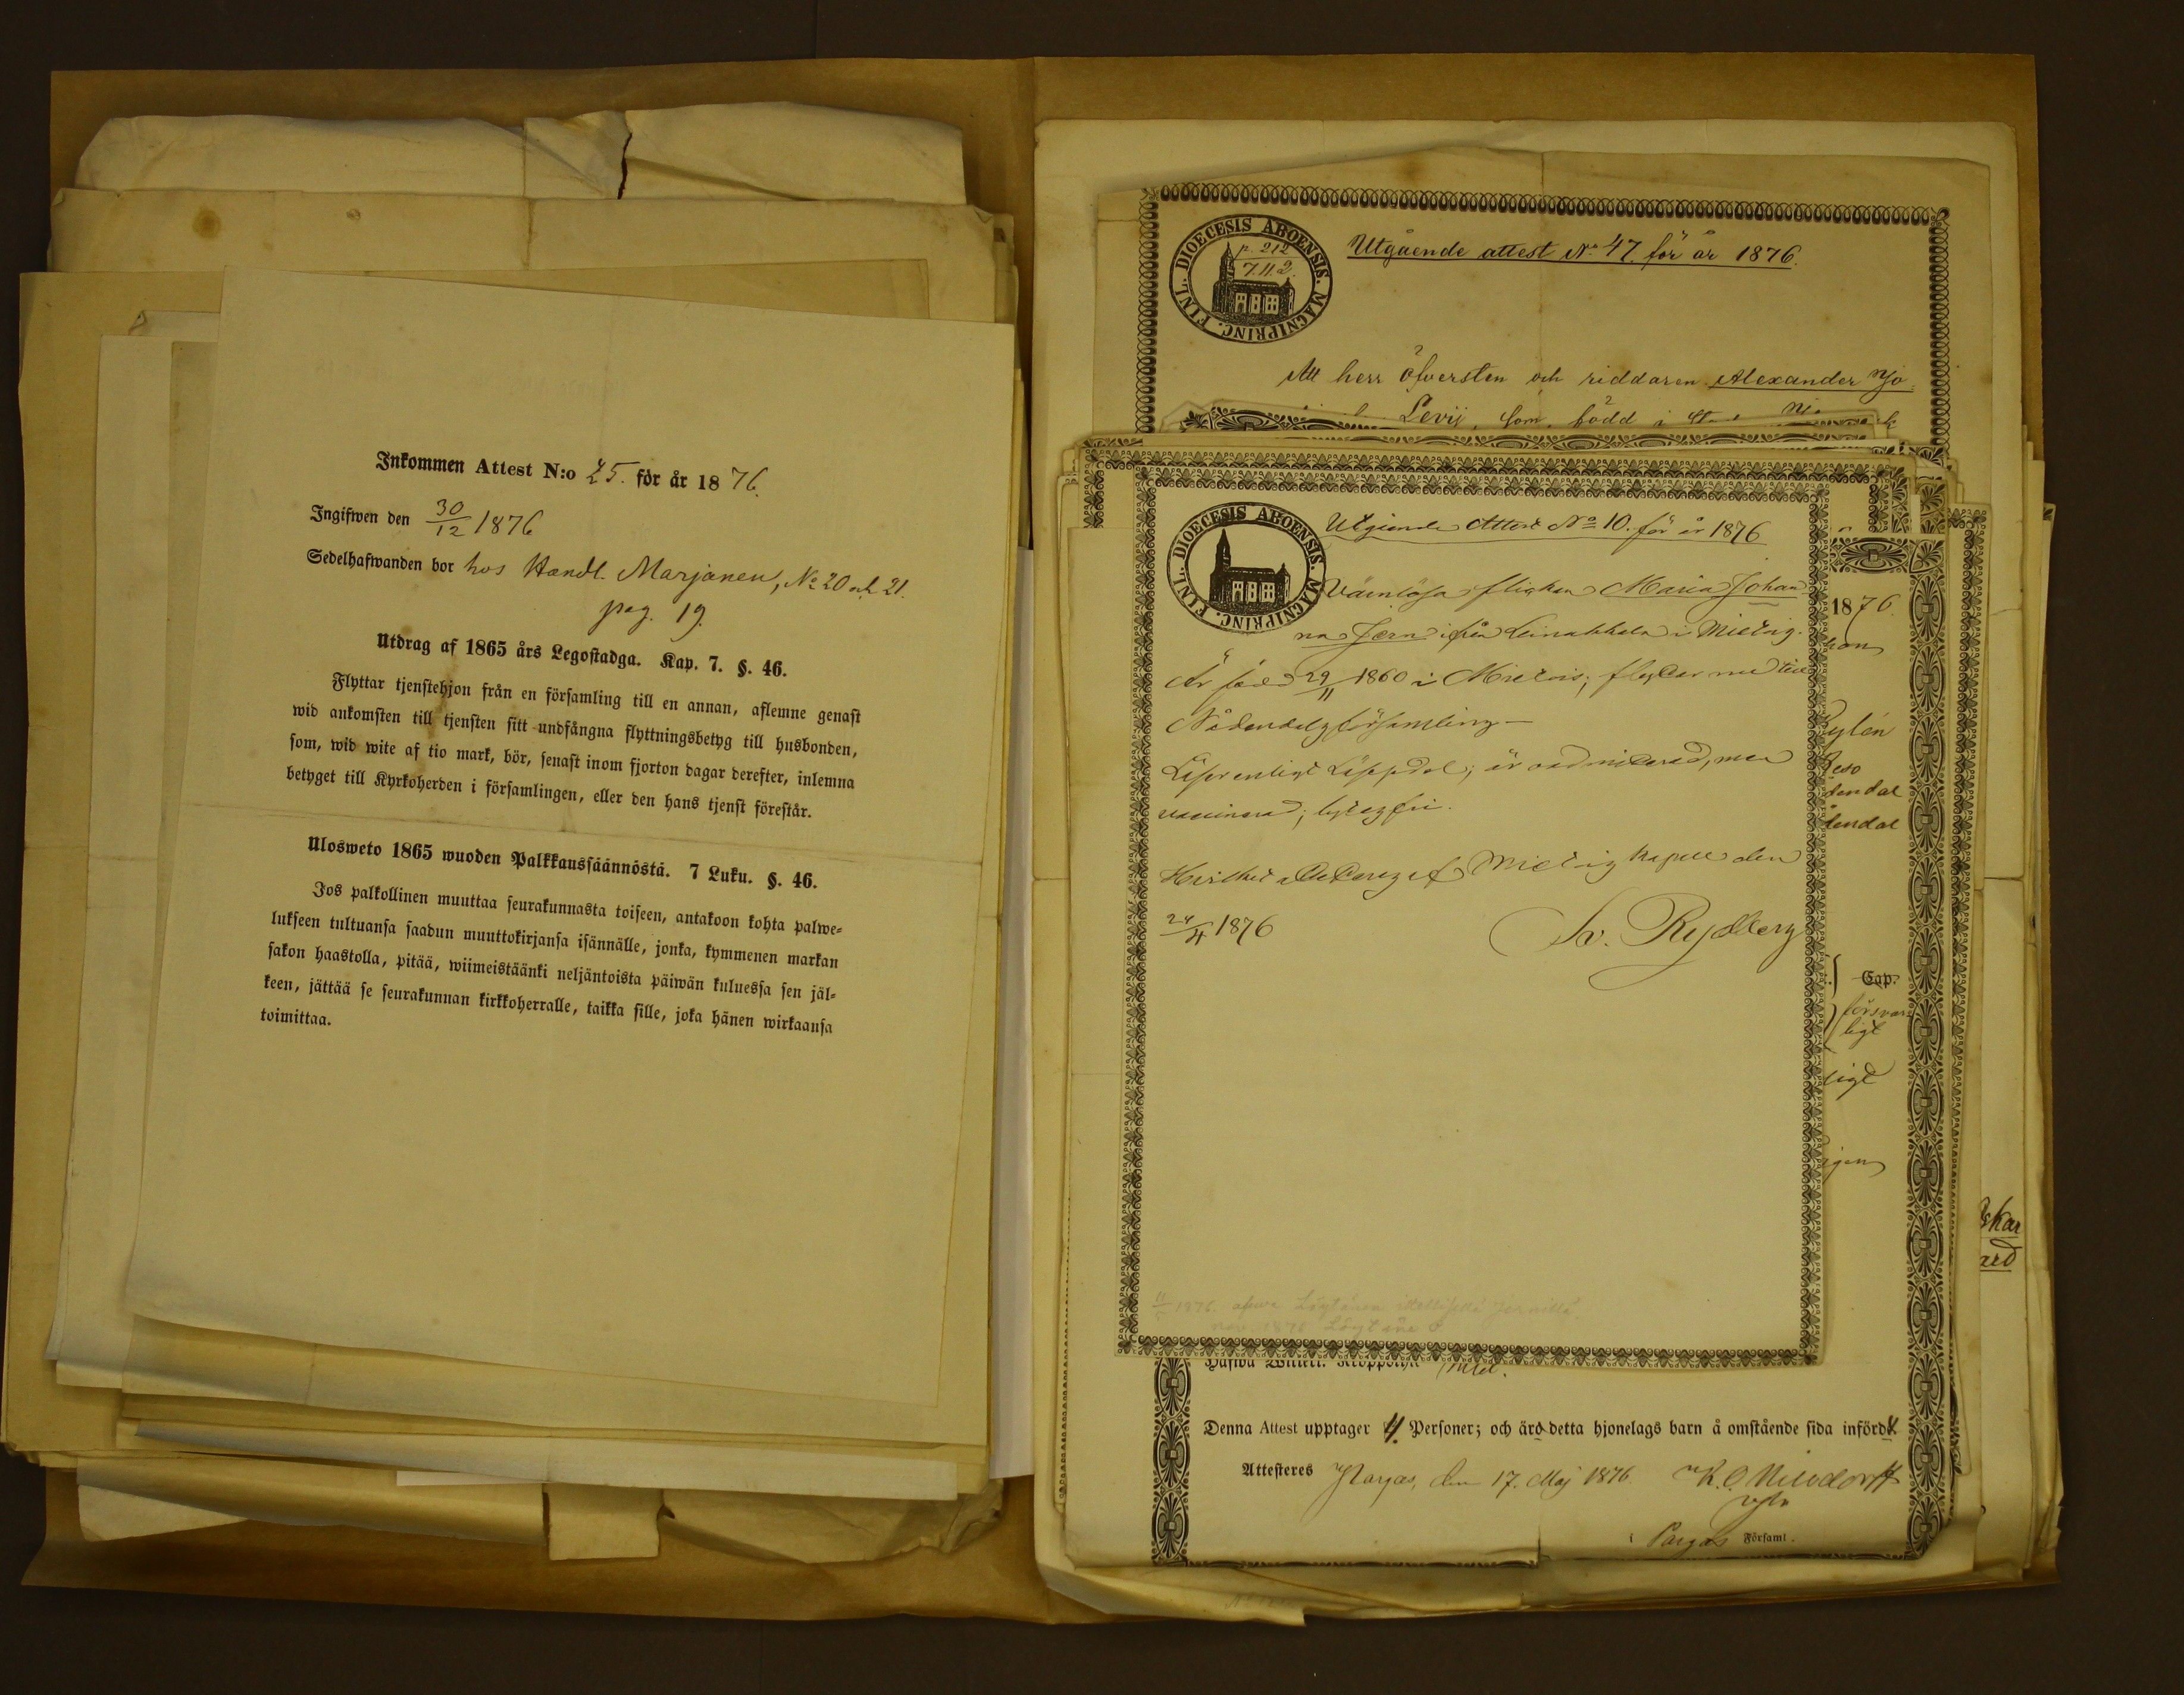 Inkommen Attest N:o 25. för år 1876.
Ingifwen den 30/12 1876
Sedelhafwanden bor hos Handl. Marjanen, No 20 och 21.
pag. 19.
Utdrag af 1865 års Legostadga. Kap. 7. §. 46.
Flyttar tjenstehjon från en församling till en annan, aflemne genast
wid ankomsten till tjensten sitt undfångna flyttningsbetyg till husbonden,
som, wid wite af tio mark, bör, senast inom fjorton dagar derefter, inlemna
betyget till Kyrkoherden i församlingen, eller den hans tjenst förestår.
Ulosweto 1865 wuoden Palkkaussäännöstä. 7 Luku. §. 46.
Jos palkollinen muuttaa seurakunnasta toiseen, antakoon kohta palwe=
lukseen tultuansa saadun muuttokirjansa isännälle, jonka, kymmenen markan
sakon haastolla, pitää, wiimeistäänki neljäntoista päiwän kuluessa sen jäl=
keen, jättää se seurakunnan kirkkoherralle, taikka sille, joka hänen wirkaansa
toimittaa.
FINL. DIOECESIS ABOENSIS. MAGNIPRINC.
p. 212
7.11.2.
Utgående attest No 47. för år 1876.
Att herr öfversten och riddaren Alexander
Levij, som, född i
FINL. DIOECESIS ABOENSIS. MAGNIPRINC.
Utgående Attest No 10. för år 1876
Värnlösa flickan Maria Johan
na Jern ifrån Leinakkala i Mietois.
Är född 29/11 1860 i Mietois; flyttar nu till
Nådendals församling –
Läser enligt ; är oadmitterad, men
vaccinerad; lytesfri.
Hvilket attesteras af Mietois Kapell den
24/4 1876
Sv. Rydberg
11/5 1876
1876
han
Nylén
Reso
dendal
dendal
Cap.
försvar-
ligt
ligt
igen
skar
ard
Denna Attest upptager 4 Personer; och äro detta hjonelags barn å omstående sida införd
Attesteres Pargas, den 17. Maj 1876
i Pargas Församl.